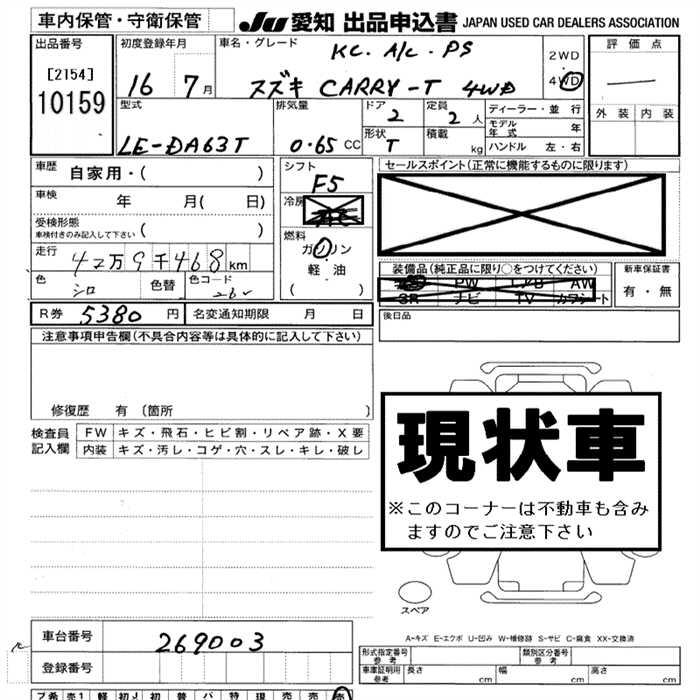 車内保管・守衛保管
JU 愛知 出品申込書 JAPAN USED CAR DEALERS ASSOCIATION
出品番号 初度登録年月 車名・グレード 評価点
[2154]
10159
16 7月
KC. A/C. PS
スズキ CARRY-T 4WD
2WD
4WD
外装 内装
型式 排気量 ドア 定員 ディーラー・並行
LE-DA63T 0.65 CC 2 2人
モデル年式 年
形状 T 積載 kg ハンドル 左・右
車歴 自家用・( )
シフト F5
セールスポイント(正常に機能するものに限ります)
車検 年 月( 日)
冷房
受検形態
車検付きのみ記入して下さい ( )
燃料 ガソリン
軽油
( )
走行 42万9千468km
色 シロ 色替 色コード 26U
装備品(純正品に限り○をつけてください)
PS PW AW
SR ナビ TV カワシート
新車保証書
有・無
R券 5380円 名変通知期限 月 日
後日品
注意事項申告欄(不具合内容等は具体的に記入して下さい)
修復歴 有 (箇所 )
現状車
※このコーナーは不動車も含み
ますのでご注意下さい
検査員記入欄 FW キズ・飛石・ヒビ割・リペア跡・X要
内装 キズ・汚レ・コゲ・穴・スレ・キレ・破レ
スペア
A-キズ E-エクボ U-凹み W-補修跡 S-サビ C-腐食 XX-交換済
車台番号 269003
登録番号
形式指定番号 参考 類別区分番号 参考
車庫証明用 参考 長さ cm 幅 cm 高さ cm